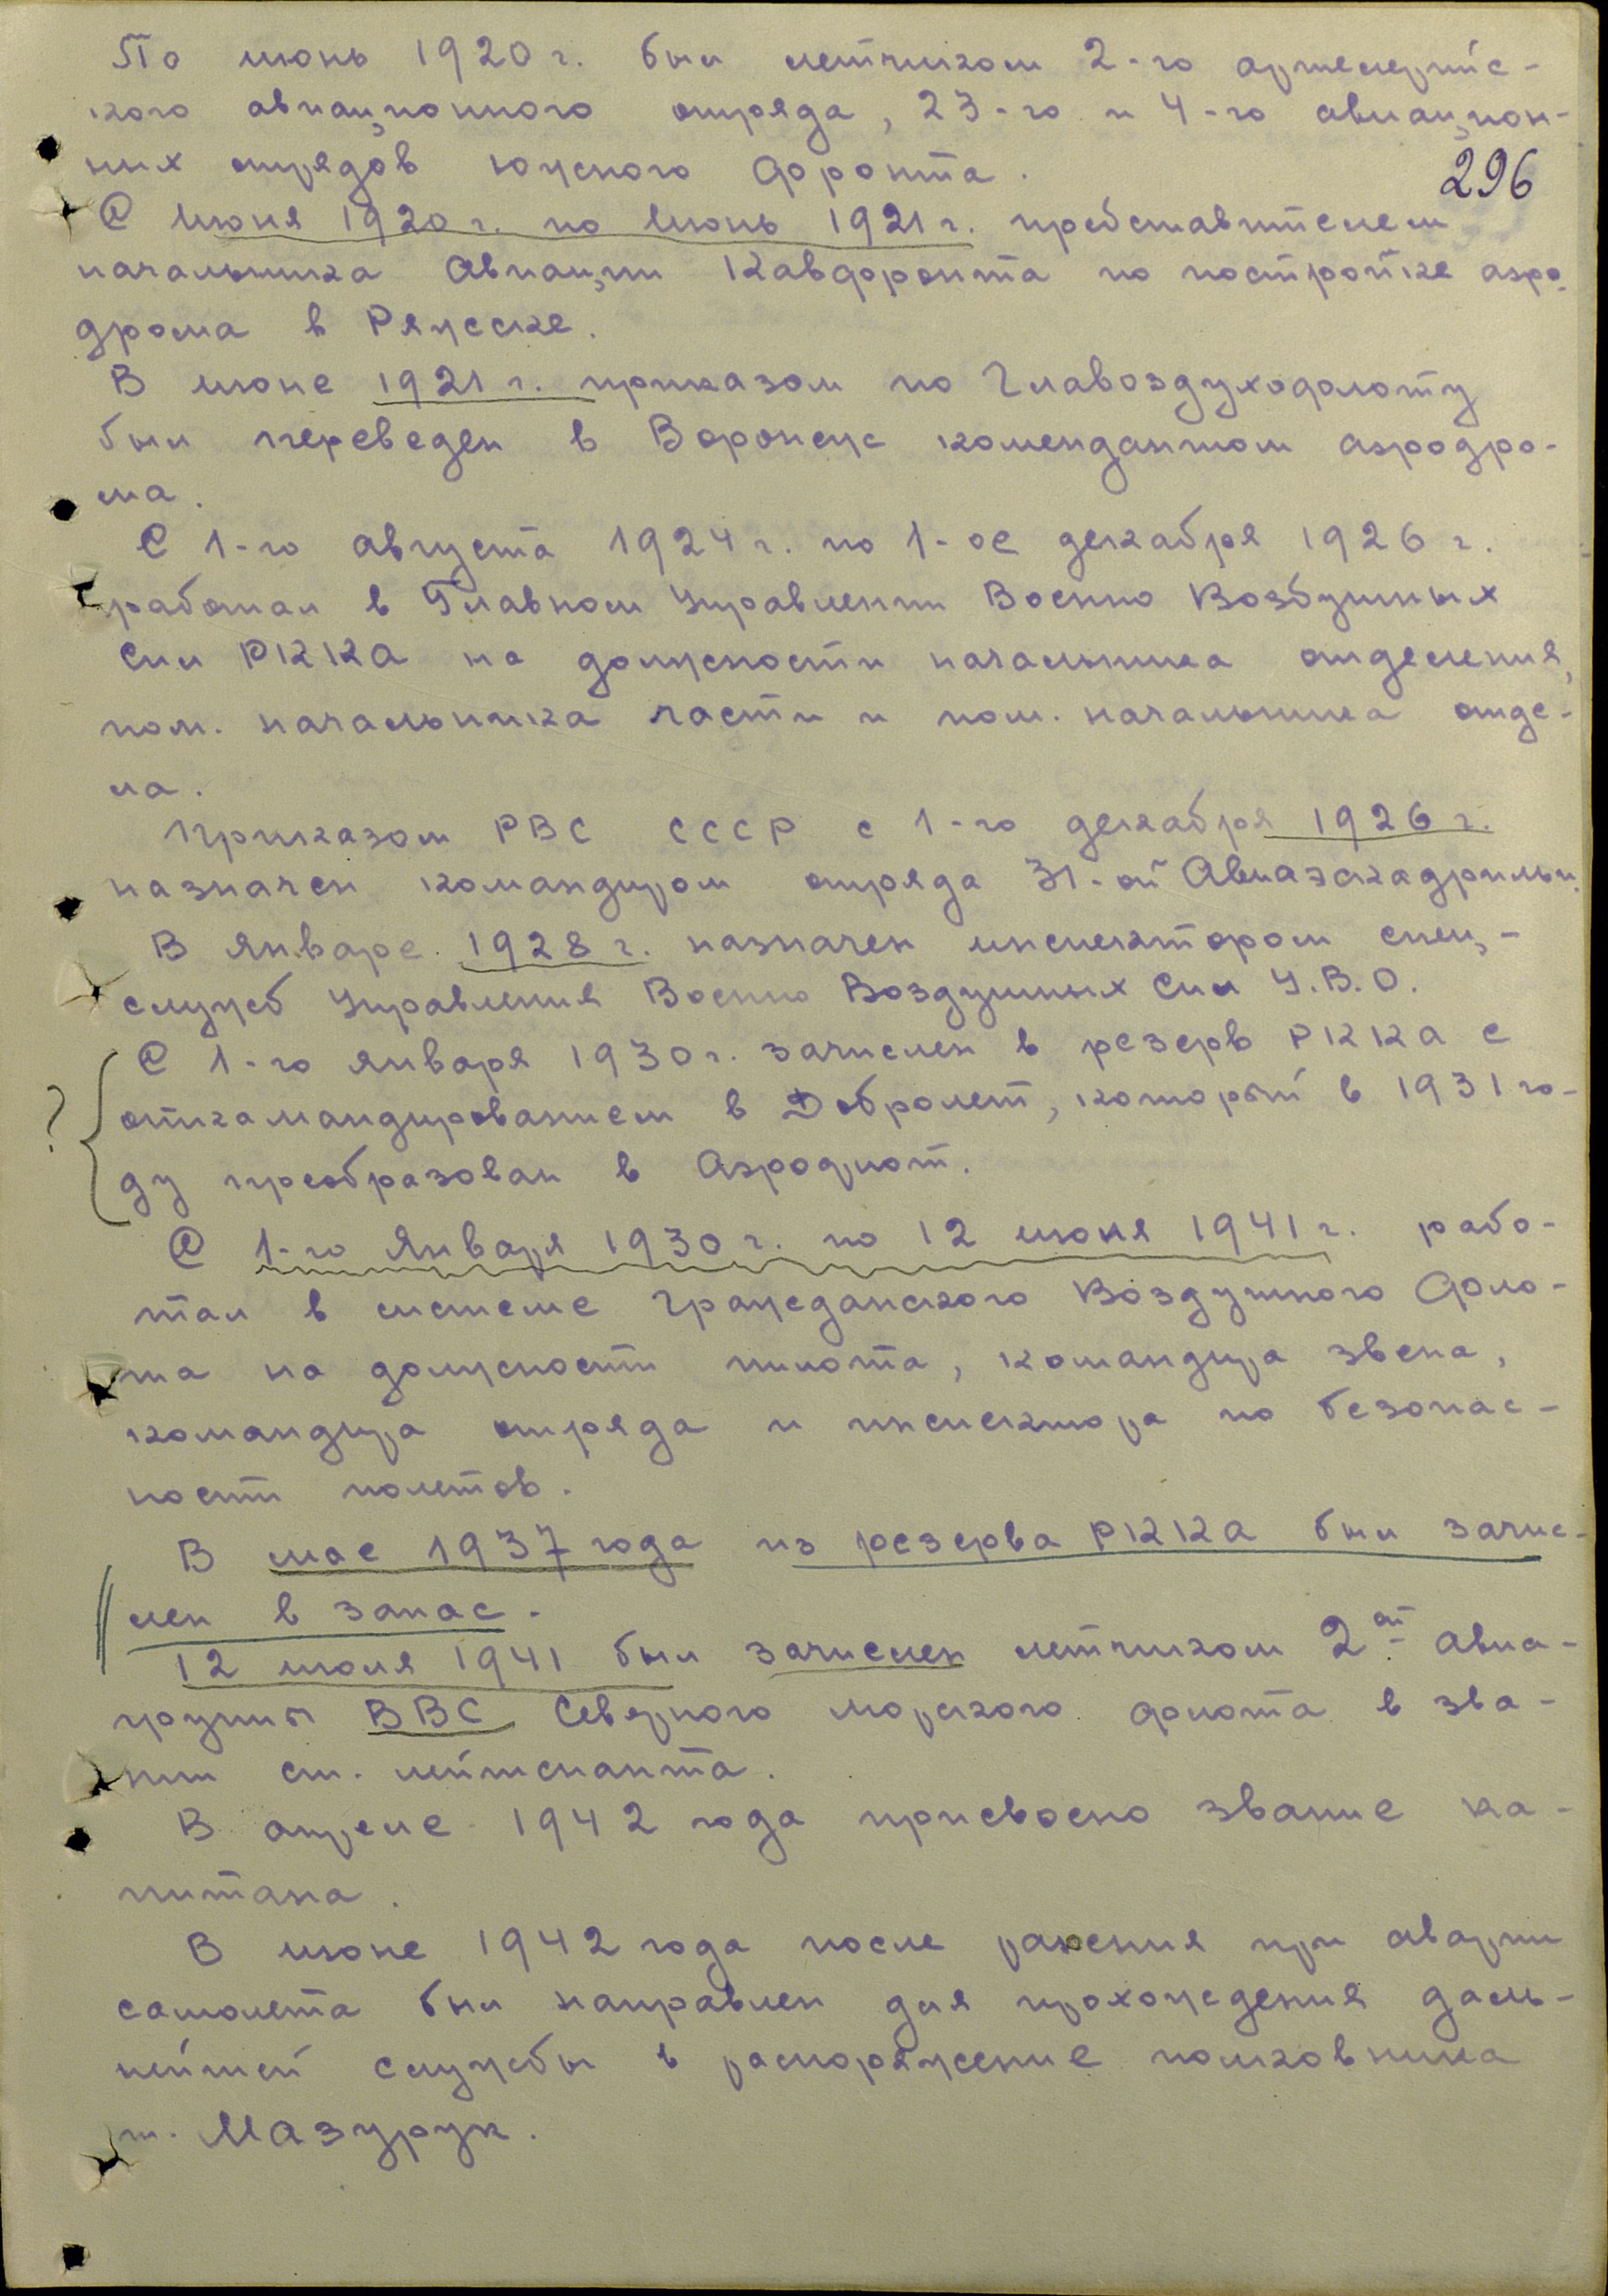 По июнь 1920 г. был летчиком 2-го артелерийс-
кого авиационного отряда, 23-го и 4-го авиацион-
ных отрядов южного фронта.
296
С июня 1920 г. по июнь 1921 г. представителем
начальника Авиации Кавфронта по постройке аэро-
дрома в Ряжске.
В июне 1921 г. приказом по Главоздухофлоту
был переведен в Воронеж комендантом аэродро-
ма.
С 1-го августа 1924 г. по 1-ое декабря 1926 г.
работал в Главном Управлении Военно Воздушных
Сил РККА на должности начальника отделения,
пом. начальника части и пом. начальника отде-
ла.
Приказом РВС СССР с 1-го декабря 1926 г.
назначен командиром отряда 31-ой Авиаэскадрильи.
В январе 1928 г. назначен инспектором спец-
служб Управления Военно Воздушных Сил У.В.О.
С 1-го января 1930 г. зачислен в резерв РККА с
откамандированием в Добролет, который в 1931 го-
?
ду преобразован в Аэрофлот.
С 1-го января 1930 г. по 12 июня 1941 г. рабо-
тал в системе Гражданского Воздушного Фло-
та на должности пилота, командира звена,
командира отряда и инспектора по безопас-
ности полетов.
В мае 1937 года из резерва РККА был зачис-
лен в запас.
12 июля 1941 был зачислен летчиком 2ой авиа-
группы ВВС Северного морского флота в зва-
нии ст. лейтенанта.
В апреле 1942 года присвоено звание ка-
питана.
В июне 1942 года после ранения при аварии
самолета был направлен для прохождения даль-
нейшей службы в распоряжение полковника
т. Мазурук.